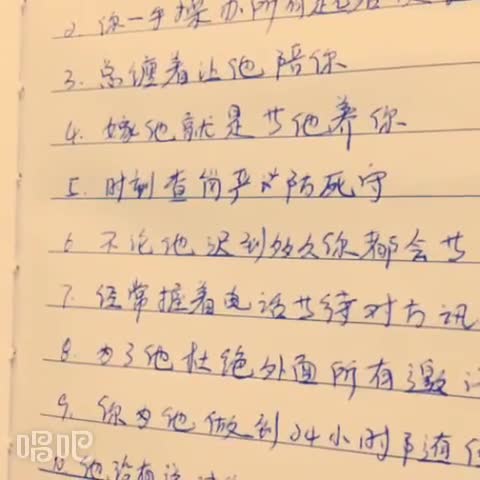 2. 你一手操办所有
3. 总缠着让他陪你
4. 嫁他就是等他养你
5. 时刻查岗严以防死守
6 不论他迟到多久你都会等
7. 经常握着电话等待对方讯
8. 为了他杜绝外面所有邀
9. 你为他做到24小时都有
唱吧
10 他没有